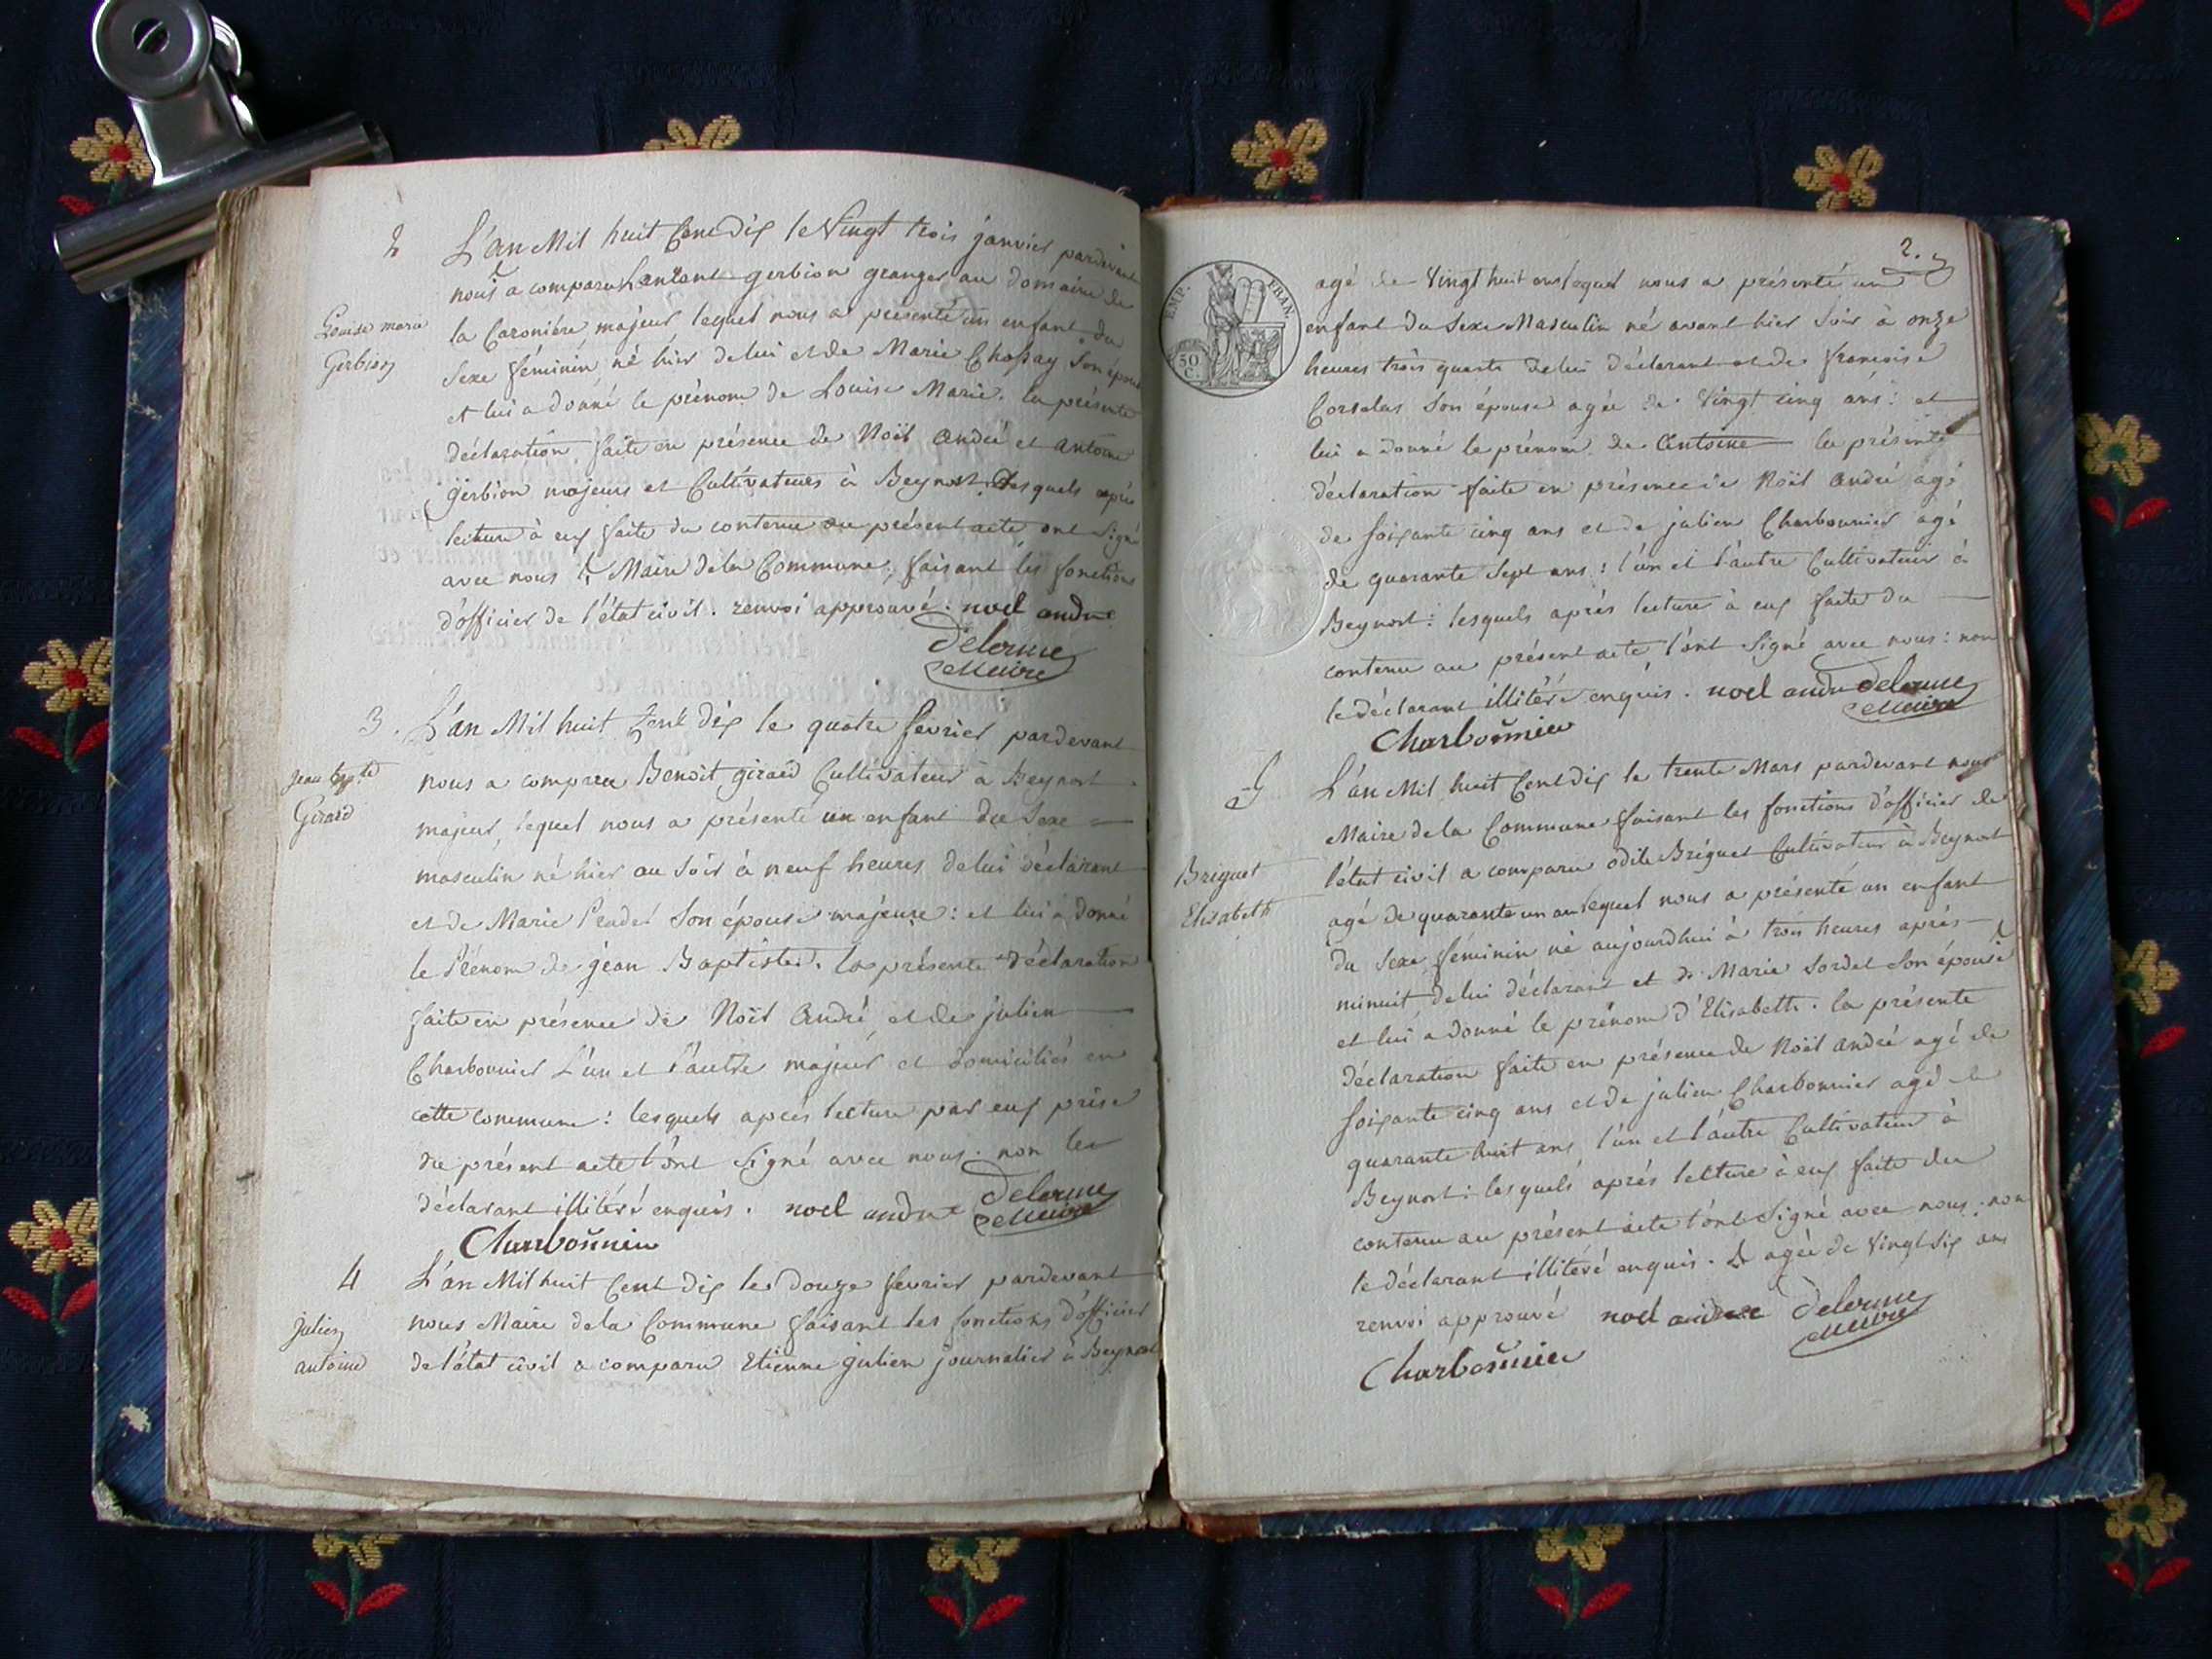 2
L'an Mil huit Cent dix le Vingt trois janvier pardevant
nous a comparu gerbion granger au domaine de
Louise marie
la Caronière majeur lequel nous a présenté un enfant du
Gerbion
Sexe féminin né hier de lui et de Marie Chossay Son épouse
et lui a donné le prénom de Louise Marie. la présente
déclaration faite en présence de Noël André et antoine
gerbion majeurs et Cultivateurs à Beynost lesquels après
lecture à eux faite du contenu au présent acte ont Signé
avec nous Maire de la Commune, faisant les fonctions
d'officier de l'état civil. renvoi approuvé. noel andre
Delorme
Maire
3.
L'an Mil huit Cent dix le quatre fevrier pardevant
Jean bapte
nous a comparu Benoit girard Cultivateur à Beynost
Girard
majeur, lequel nous a présenté un enfant du Sexe
masculin né hier au Soir à neuf heures de lui déclarant
et de Marie Pradel Son épouse majeure : et lui a donné
le Prénom de jean Baptiste. la présente déclaration
faite en présence de Noël André, et de julien
Charbonnier L'un et l'autre majeur et domiciliés en
cette commune : lesquels après lecture par eux prise
du présent acte l'ont Signé avec nous. non le
déclarant illitéré enquis. noel andre Delorme
Maire
Charbonnier
4
L'an Mil huit Cent dix le douze fevrier pardevant
Julien
nous Maire de la Commune faisant les fonctions d'officier
antoine
de l'état civil a comparu Etienne julien journalier à Beynost
2.
EMP. FRAN.
50 C.
agé de Vingt huit ans lequel nous a présenté un
enfant du Sexe Masculin né avant hier Soir à onze
heures trois quarts de lui déclarant et de francoise
Corselas Son épouse agée de Vingt cinq ans : et
lui a donné le prénom de Antoine la présente
déclaration faite en présence de Noël André agé
de soixante cinq ans et de julien Charbonnier agé
de quarante Sept ans : l'un et l'autre Cultivateur à
Beynost : lesquels après lecture à eux faite du
contenu au présent acte l'ont Signé avec nous : non
le déclarant illitéré enquis. noel andre Delorme
Maire
Charbonnier
5
L'an Mil huit Cent dix le trente Mars pardevant nous
Maire de la Commune faisant les fonctions d'officier de
Briguet
l'état civil a comparu odile Briguet Cultivateur à Beynost
Elisabeth
agé de quarante un an lequel nous a présenté un enfant
du Sexe féminin né aujourdhui à trois heures après
minuit de lui déclarant et de Marie Sordet Son épouse
et lui a donné le prénom d'Elisabeth. la présente
déclaration faite en présence de Noël André agé de
soixante cinq ans et de julien Charbonnier agé de
quarante huit ans, l'un et l'autre Cultivateur à
Beynost : lesquels après lecture à eux faite du
contenu au présent acte l'ont Signé avec nous. non
le déclarant illitéré enquis. agée de Vingt Six ans
renvoi approuvé noel andre Delorme
Maire
Charbonnier